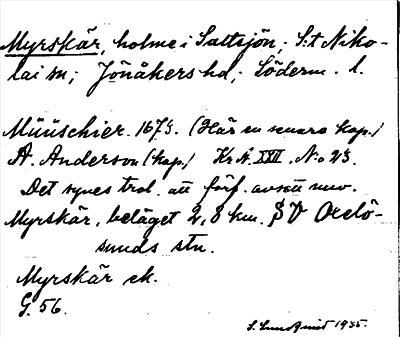 Myrskär, holme i Saltsjön, S:t Niko-
lai sn; Jönåkers hd, Söderm. l.
Müüschier. 1673. (Här en senare kop.)
A. Anderson (kop.) Kr. A. XXII. No 23.
Det synes trol. att förf. avsett nuv.
Myrskär, beläget 2,8 km. SV Oxelö-
sunds stn.
Myrskär ek.
G. 56.
S. Lundqvist 1935.